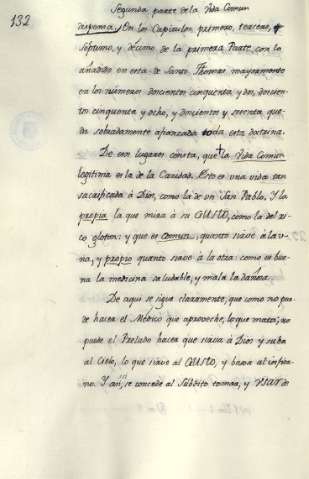 132
Segunda parte de la Vida Comun
dispensa. En los Capitulos primero, tercero, y
septimo, y décimo de la primera Parte, con lo
añadido en esta de Santo Thomas mayormente
en los números docientos cinquenta y dos, docien-
tos cinquenta y ocho, y docientos y sesenta, que-
da sobradamente afianzada toda esta doctrina.
De cien lugares consta, que la Vida Comun
legitima es la de la Caridad. Esto es una vida tan
sacrificada à Dios, como la de un San Pablo. Y la
propia la que mira à su GUSTO, como la del ri-
co gloton: y que es comun, quanto sirve à la u-
na, y propio quanto sirve à la otra: como es bue-
na la medicina saludable, y mala la dañosa.
De aqui se sigue claramente, que como no pue-
de hacer el Médico que aproveche, lo que mata; no
puede el Prelado hacer que sirva à Dios y suba
al Cielo, lo que sirve al GUSTO, y baxa al infier-
no. Y assi, si concede al Súbdito tomar, y USAR de